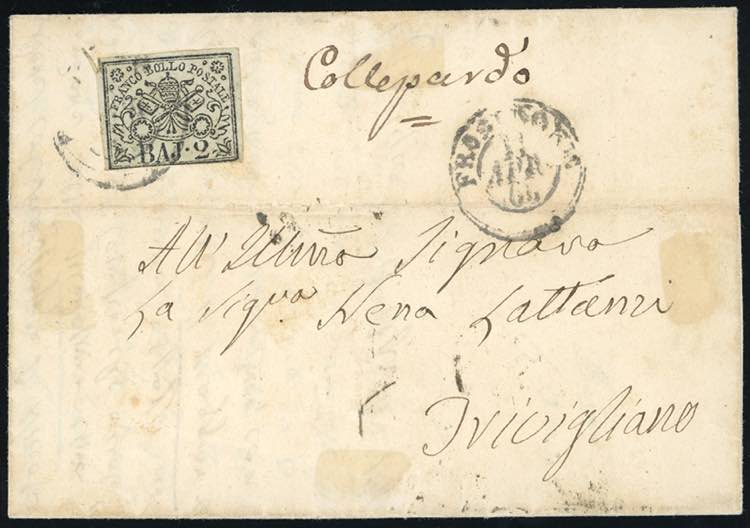 FRANCO BOLLO POSTALE
BAJ. 2
Collepardo
FROSINONE
11
APR
All' Illma Signora
La Sigra Nena Lattanzi
Trivigliano